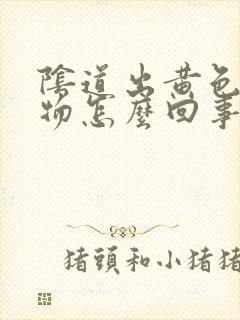 陰道出黃色
物怎麼回事
猪頭和小猪猪